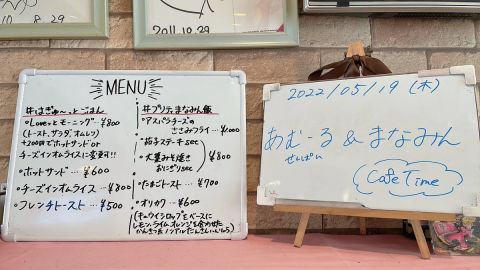 10.8.29
2011.10.29
MENU
#はぎゅ〜っとごはん
・Loveっとモーニング…¥800
(トースト、サラダ、オムレツ)
+200円でホットサンドor
チーズインオムライスに変更可!!
・ホットサンド…¥600
・チーズインオムライス…¥800
・フレンチトースト…¥500
#プリティまなみん飯
・アスパラチーズの
ささみフライ…¥1000
・茄子ステーキsec
・大葉みそ焼き
おにぎりsec
¥800
・たまごトースト…¥700
・オリカク…¥600
(キウイシロップをベースに
レモン、ライム、オレンジを合わせた
2022/05/19(木)
あむーる&まなみん
せんぱい
Cafe Time